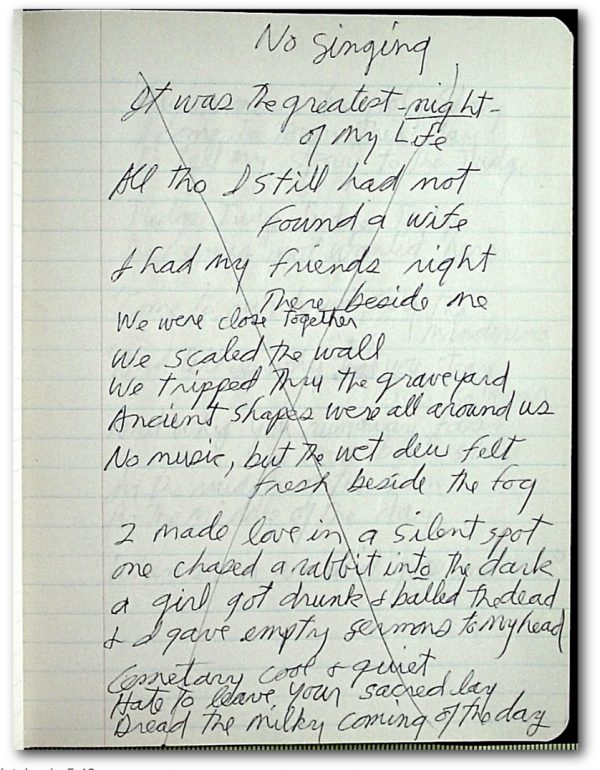 No Singing
It was the greatest night
of my Life
All tho I still had not
found a wife
I had my friends right
There beside me
We were close together
We scaled the wall
We tripped thru the graveyard
Ancient shapes were all around us
No music, but the wet dew felt
fresh beside the fog
2 made love in a silent spot
one chased a rabbit into the dark
a girl got drunk & balled the dead
& I gave empty sermons to my head
Cemetary cool & quiet
Hate to leave your sacred lay
Dread the milky coming of the day